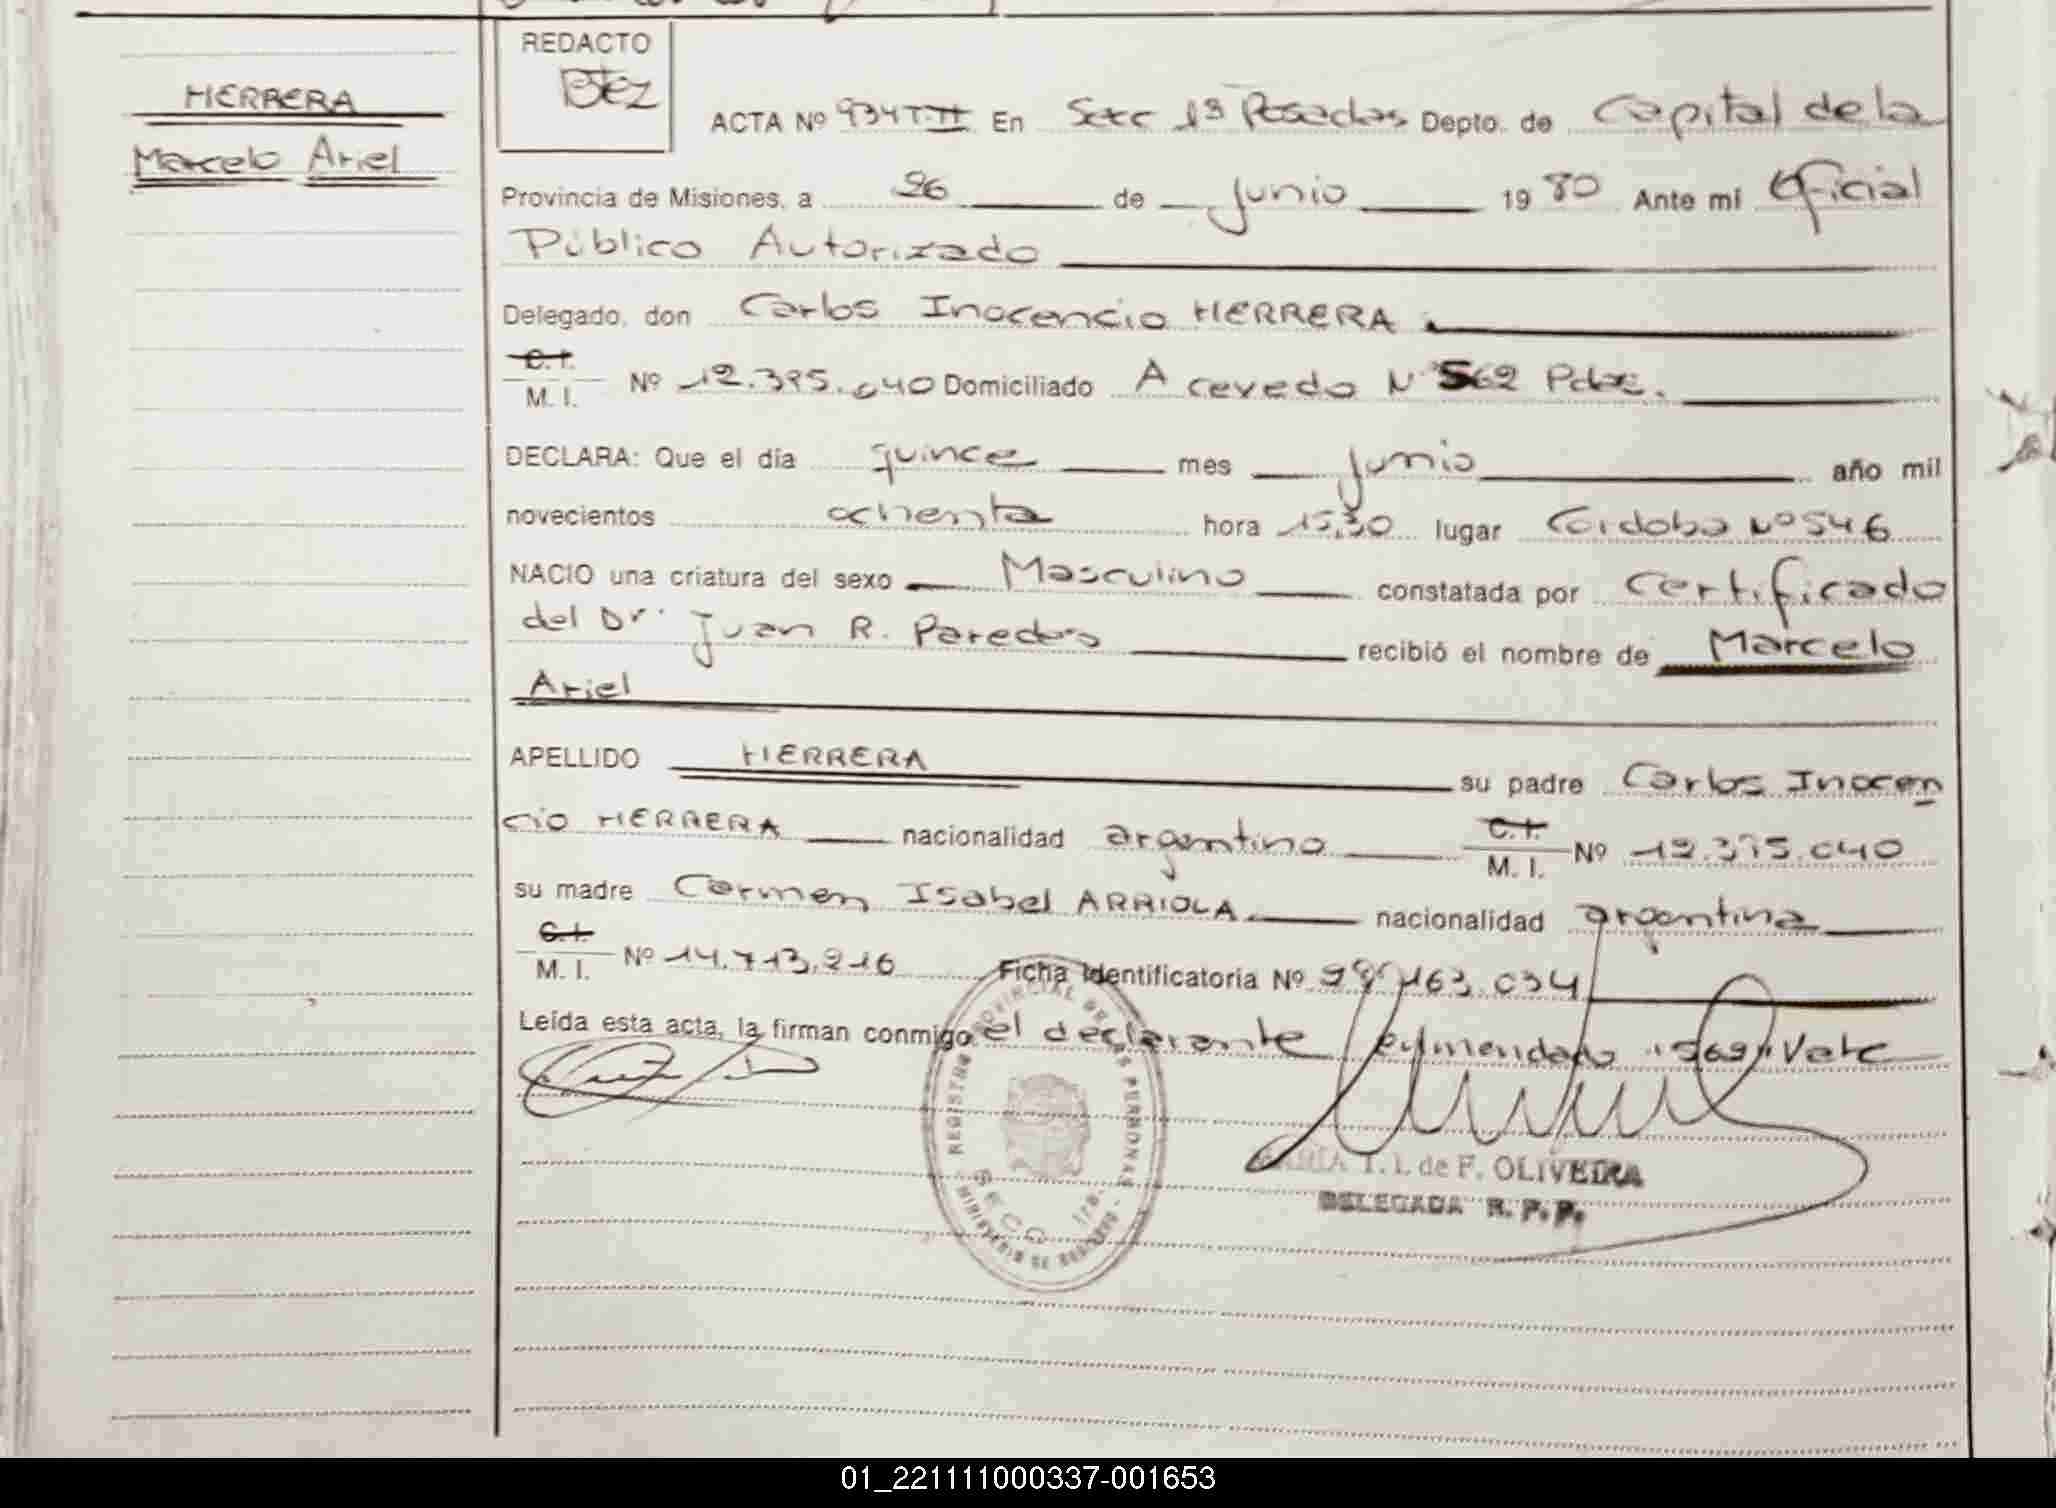 HERRERA
Marcelo Ariel
REDACTO
ACTA Nº 934 T-II En Secc 1ª Posadas Depto. de Capital de la
Provincia de Misiones, a 26 de Junio 1980 Ante mí Oficial
Público Autorizado
Delegado, don Carlos Inocencio HERRERA
C.I.
M. I. Nº 12.395.040 Domiciliado Acevedo Nº 562 Pdas.
DECLARA: Que el día quince mes Junio año mil
novecientos ochenta hora 15,30 lugar Córdoba Nº 546
NACIO una criatura del sexo Masculino constatada por certificado
del Dr. Juan R. Paredes recibió el nombre de Marcelo
Ariel
APELLIDO HERRERA su padre Carlos Inocen
cio HERRERA nacionalidad argentino C.I.
M. I. Nº 12.395.040
su madre Carmen Isabel ARRIOLA nacionalidad argentina
C.I.
M. I. Nº 14.713.216 Ficha Identificatoria Nº 163.034
Leída esta acta, la firman conmigo el declarante enmendado "562" Vale
REGISTRO PROVINCIAL DE LAS PERSONAS
SECC. 1ra.
MINISTERIO DE GOBIERNO
MARIA T. I. de F. OLIVEIRA
DELEGADA R. P. P.
01_221111000337-001653